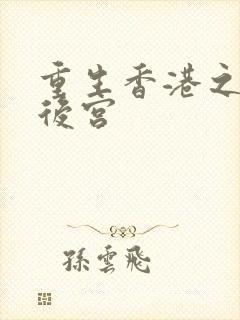 重生香港之
後宮
孫雲飛